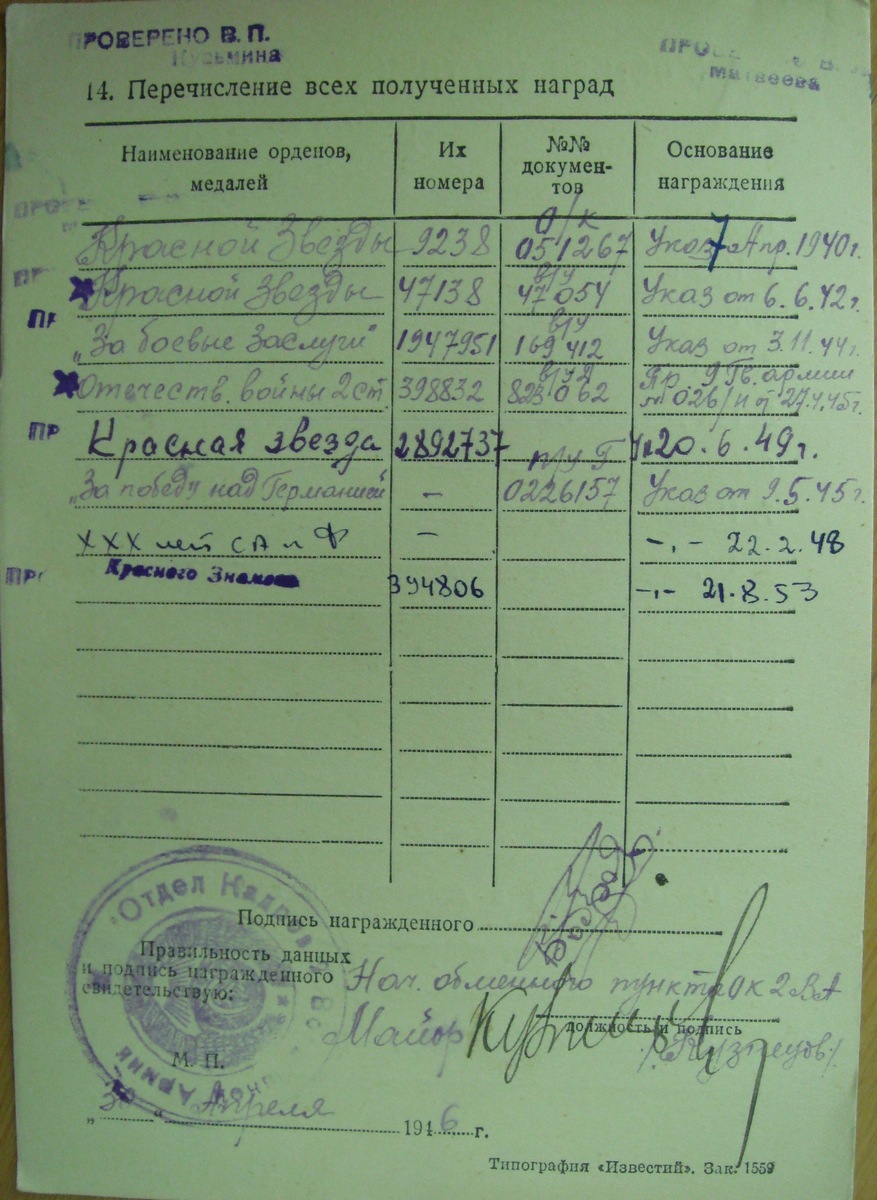 ПРОВЕРЕНО В. П.
Кузьмина
Матвеева
14. Перечисление всех полученных наград
Наименование орденов, медалей
Их номера
№№ документов
Основание награждения
О/К
Красной Звезды 9238 051267 Указ 7 Апр. 1940 г.
в/у
Красной Звезды 47138 47054 Указ от 6.6.42 г.
в/у
„За боевые заслуги" 1947951 169412 Указ от 3.11.44 г.
Отечеств. войны 2 ст. 398832 823062 Пр. 9 Гв. армии
№ 026/н от 27.4.45 г.
Красная звезда 2892737 20.6.49 г.
„За победу над Германией" – 0226157 Указ от 9.5.45 г.
XXX лет СА и Ф – –„– 22.2.48
Красного Знамени 394806 –„– 21.8.53
Подпись награжденного
Правильность данных
и подпись награжденного
свидетельствую:
Нач. обменного пункта ОК 2 ВА
должность и подпись
Майор
/Кузнецов/
М. П.
„30“ Апреля 1946 г.
Отдел Кадров
Типография «Известий». Зак. 1559